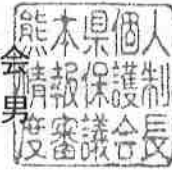 熊本県個人
情報保護制
度審議会長
会男